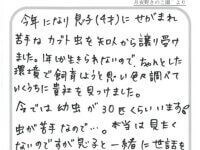 今年になり息子(4才)にせがまれ
苦手なカブト虫を知人から譲り受け
ました。1年しか生きられないので、ちゃんとした
環境で飼育しようと思い色々調べて
いくうちに貴社を見つけました。
今では幼虫が30匹くらいいます。
虫が苦手なので…。本当は見たく
ないのですが息子と一緒に世話を